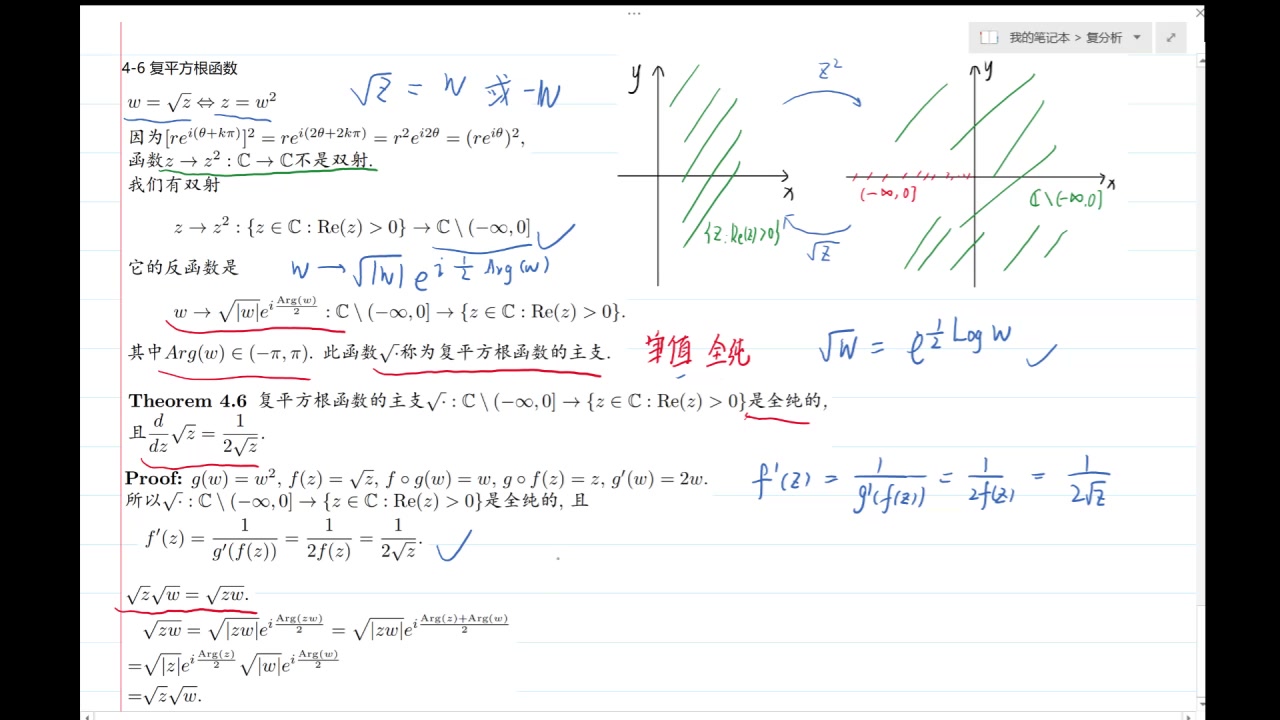 我的笔记本 > 复分析
4-6 复平方根函数
√z = w 或 -w
w = √z ⇔ z = w²
因为[re^{i(θ+kπ)}]² = re^{i(2θ+2kπ)} = r²e^{i2θ} = (re^{iθ})²,
函数z → z² : ℂ → ℂ不是双射.
我们有双射
z → z² : {z ∈ ℂ : Re(z) > 0} → ℂ \ (−∞, 0]
它的反函数是
w → √|w| e^{i 1/2 Arg(w)}
w → √|w|e^{i Arg(w)/2} : ℂ \ (−∞, 0] → {z ∈ ℂ : Re(z) > 0}.
其中Arg(w) ∈ (−π, π). 此函数√·称为复平方根函数的主支.
y
x
{z: Re(z)>0}
z²
√z
y
x
(-∞,0]
ℂ\(-∞,0]
单值 全纯
√w = e^{1/2 Log w}
Theorem 4.6 复平方根函数的主支√· : ℂ \ (−∞, 0] → {z ∈ ℂ : Re(z) > 0}是全纯的,
且 d/dz √z = 1/(2√z).
Proof: g(w) = w², f(z) = √z, f ∘ g(w) = w, g ∘ f(z) = z, g′(w) = 2w.
所以√· : ℂ \ (−∞, 0] → {z ∈ ℂ : Re(z) > 0}是全纯的, 且
f′(z) = 1/g′(f(z)) = 1/2f(z) = 1/2√z.
f'(z) = 1/g'(f(z)) = 1/2f(z) = 1/2√z
√z√w = √zw.
√zw = √|zw|e^{i Arg(zw)/2} = √|zw|e^{i (Arg(z)+Arg(w))/2}
=√|z|e^{i Arg(z)/2} √|w|e^{i Arg(w)/2}
=√z√w.